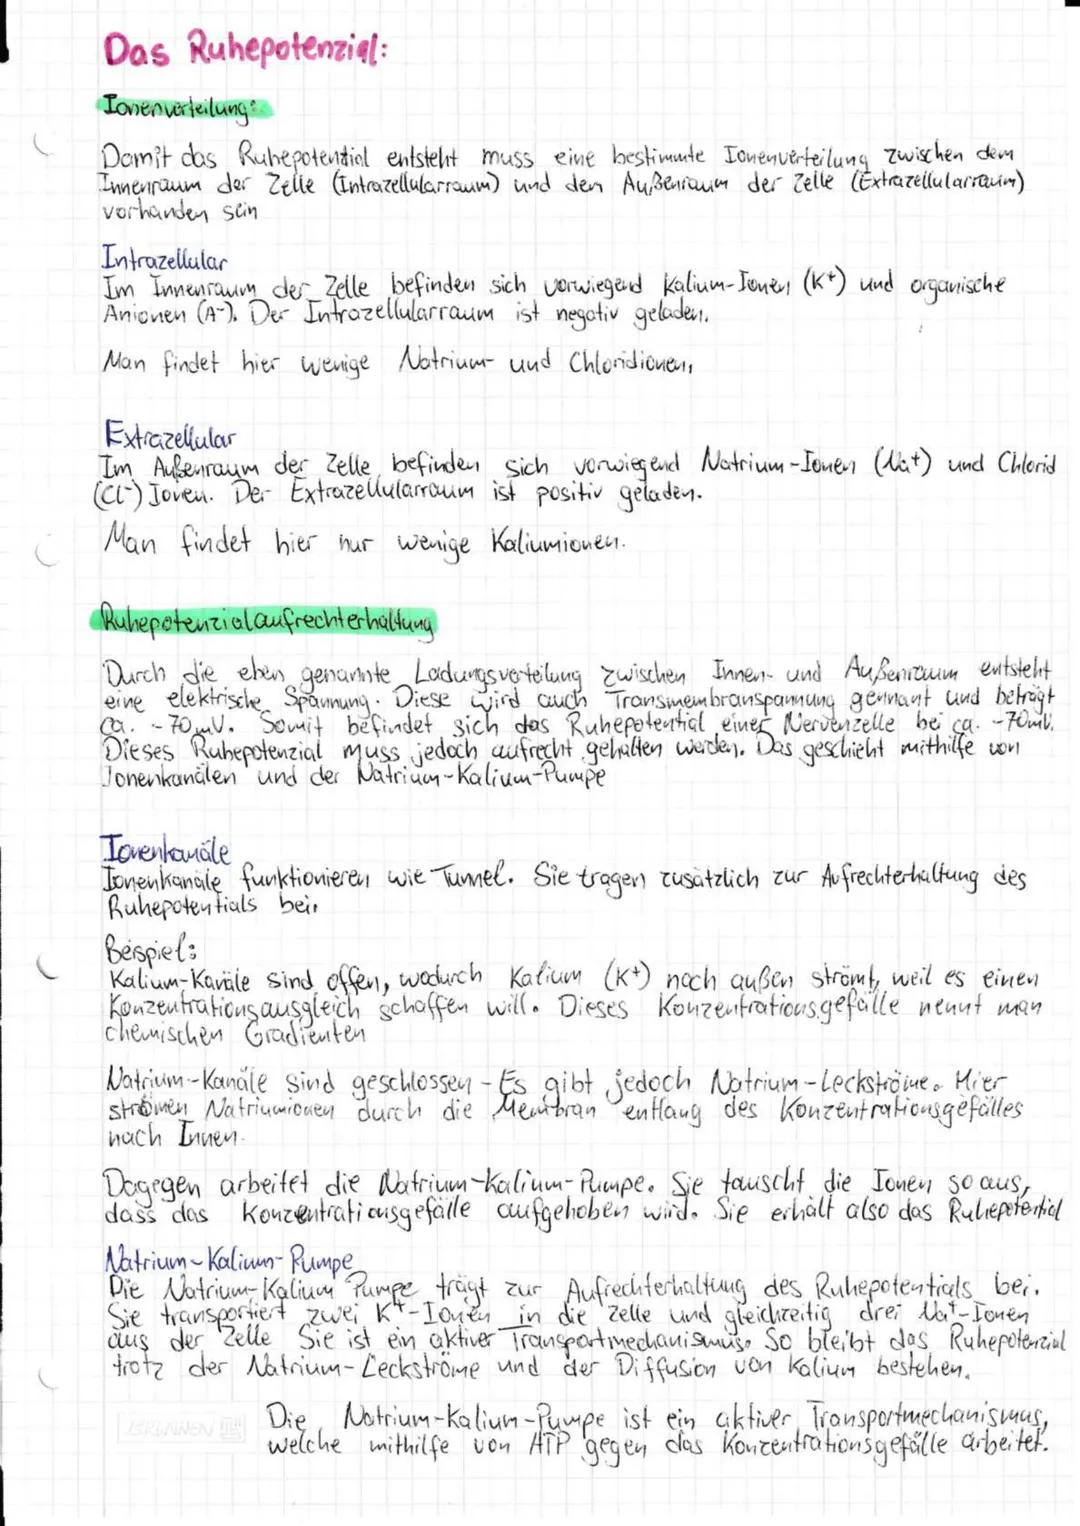 Das Ruhepotenzial:
Ionenverteilung:
Damit das Ruhepotential entsteht muss eine bestimmte Ionenverteilung zwischen dem
Innenraum der Zelle (Intrazellularraum) und dem Außenraum der Zelle (Extrazellularraum)
vorhanden sein
Intrazellular
Im Innenraum der Zelle befinden sich vorwiegend Kalium-Ionen (K+) und organische
Anionen (A-). Der Intrazellularraum ist negativ geladen.
Man findet hier wenige Natrium- und Chloridionen.
Extrazellular
Im Außenraum der Zelle befinden sich vorwiegend Natrium-Ionen (Na+) und Chlorid
(Cl-) Ionen. Der Extrazellularraum ist positiv geladen.
Man findet hier nur wenige Kaliumionen.
Ruhepotenzialaufrechterhaltung
Durch die eben genannte Ladungsverteilung zwischen Innen- und Außenraum entsteht
eine elektrische Spannung. Diese wird auch Transmembranspannung gennant und beträgt
ca. -70mV. Somit befindet sich das Ruhepotential einer Nervenzelle bei ca. -70mV.
Dieses Ruhepotenzial muss jedoch aufrecht gehalten werden. Das geschieht mithilfe von
Ionenkanälen und der Natrium-Kalium-Pumpe
Ionenkanäle
Ionenkanäle funktionieren wie Tunnel. Sie tragen zusätzlich zur Aufrechterhaltung des
Ruhepotentials bei.
Beispiel:
Kalium-Kanäle sind offen, wodurch Kalium (K+) nach außen strömt, weil es einen
Konzentrationsausgleich schaffen will. Dieses Konzentrationsgefälle nennt man
chemischen Gradienten
Natrium-Kanäle sind geschlossen - Es gibt jedoch Natrium-Leckströme. Hier
strömen Natriumionen durch die Membran entlang des Konzentrationsgefälles
nach Innen.
Dagegen arbeitet die Natrium-Kalium-Pumpe. Sie tauscht die Ionen so aus,
dass das Konzentrationsgefälle aufgehoben wird. Sie erhält also das Ruhepotential
Natrium-Kalium-Pumpe
Die Natrium-Kalium Pumpe trägt zur Aufrechterhaltung des Ruhepotentials bei.
Sie transportiert zwei K+-Ionen in die Zelle und gleichzeitig drei Na+-Ionen
aus der Zelle Sie ist ein aktiver Transportmechanismus. So bleibt das Ruhepotenzial
trotz der Natrium-Leckströme und der Diffusion von Kalium bestehen.
Die Natrium-Kalium-Pumpe ist ein aktiver Transportmechanismus,
welche mithilfe von ATP gegen das Konzentrationsgefälle arbeitet.